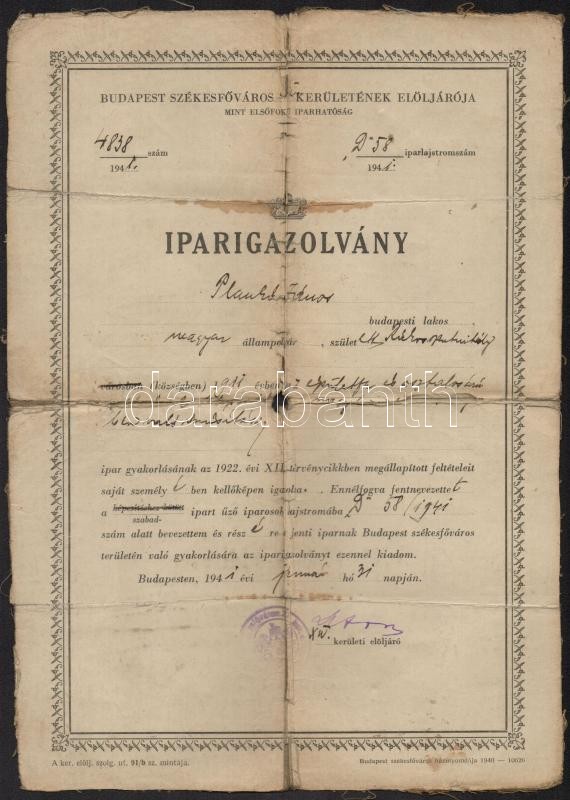 BUDAPEST SZÉKESFŐVÁROS KERÜLETÉNEK ELÖLJÁRÓJA
MINT ELSŐFOKÚ IPARHATÓSÁG
4838 szám
1941.
D-58 iparlajstromszám
1941.
IPARIGAZOLVÁNY
János
budapesti lakos
magyar állampolgár, született
városban (községben) évben
darabanth
ipar gyakorlásának az 1922. évi XII. törvénycikkben megállapított feltételeit
saját személyében kellőképen igazolta. Ennélfogva fentnevezettet
a képesítéshez kötött
szabad-
ipart űző iparosok lajstromába D-58/1941
szám alatt bevezettem és részére jenti iparnak Budapest székesfőváros
területén való gyakorlására az iparigazolványt ezennel kiadom.
Budapesten, 1941 évi január hó 31 napján.
XIV. kerületi elöljáró
A ker. elölj. szolg. ut. 91/b sz. mintája.
Budapest székesfőváros házinyomdája 1940 — 10626